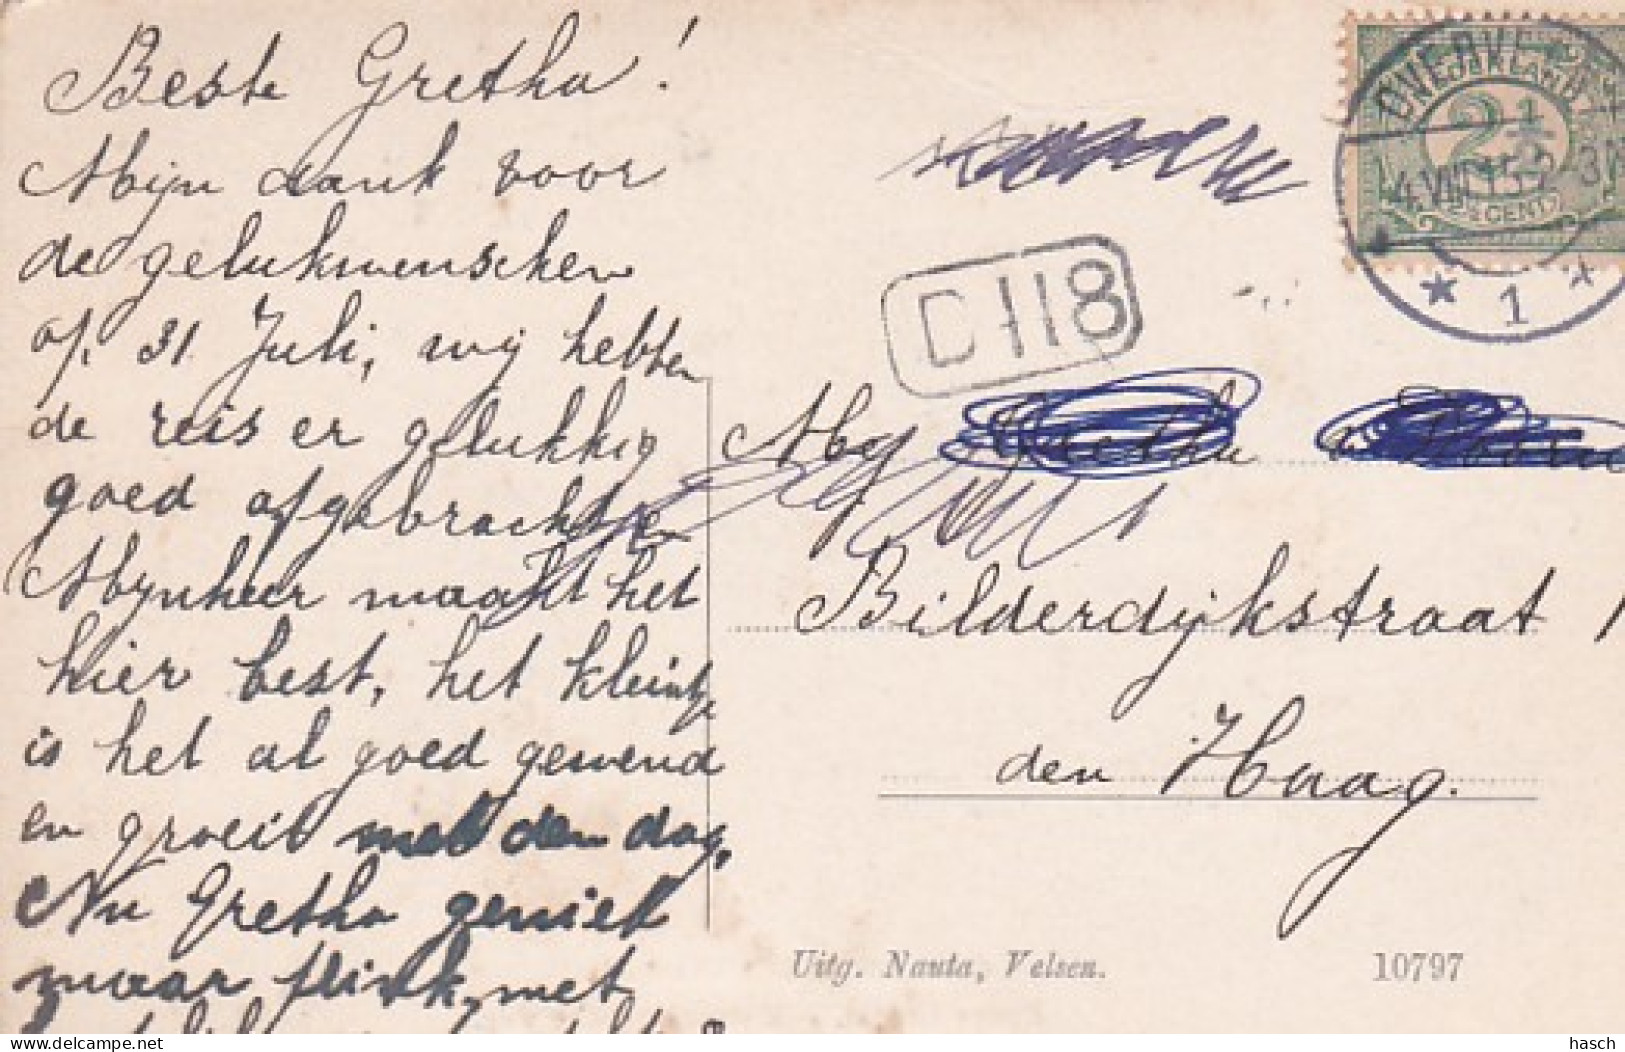 Beste Gretha!
Mijn dank voor
de gelukwenschen
op 31 Juli, wij hebben
de reis er gelukkig
goed afgebracht en
Mynheer maakt het
hier best, het kleintje
is het al goed gewend
en groeit met den dag,
Nu Gretha geniet
maar flink, met
NEDERLAND
2½
2½ CENT
OVERVE
4.VIII.15.2-3N
1
C 118
Mej Gretha
Bilderdijkstraat 1
den Haag.
Uitg. Nauta, Velsen.
10797
hasch
delcampe.net